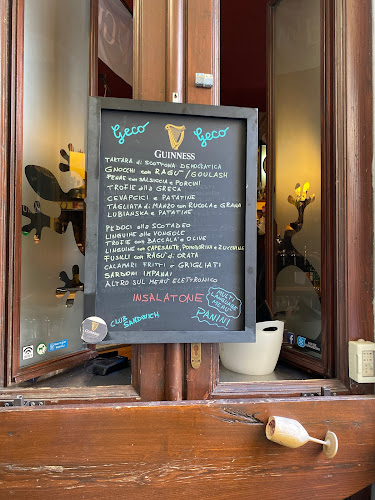 Geco Geco
GUINNESS
TARTARA di SCOTTONA DEMOCRATICA
GNOCCHI con RAGU'/GOULASH
PENNE con SALSICCIA e PORCINI
TROFIE alla GRECA
CEVAPCICI e PATATINE
TAGLIATA di MANZO con RUCOLA e GRANA
LUBIANSKA e PATATINE
PEDOCI alla SCOTADEO
LINGUINE alle VONGOLE
TROFIE con BACCALA' e OLIVE
LINGUINE con CAPESANTE, POMODORINI e ZUCCHINE
FUSILLI con RAGU' di ORATA
CALAMARI FRITTI o GRIGLIATI
SARDONI IMPANAI
ALTRO SUL MENU' ELETTRONICO
INSALATONE
MULTI
LANGUAGE
MENU
PANINI
CLUB
SANDWICH
GUINNESS